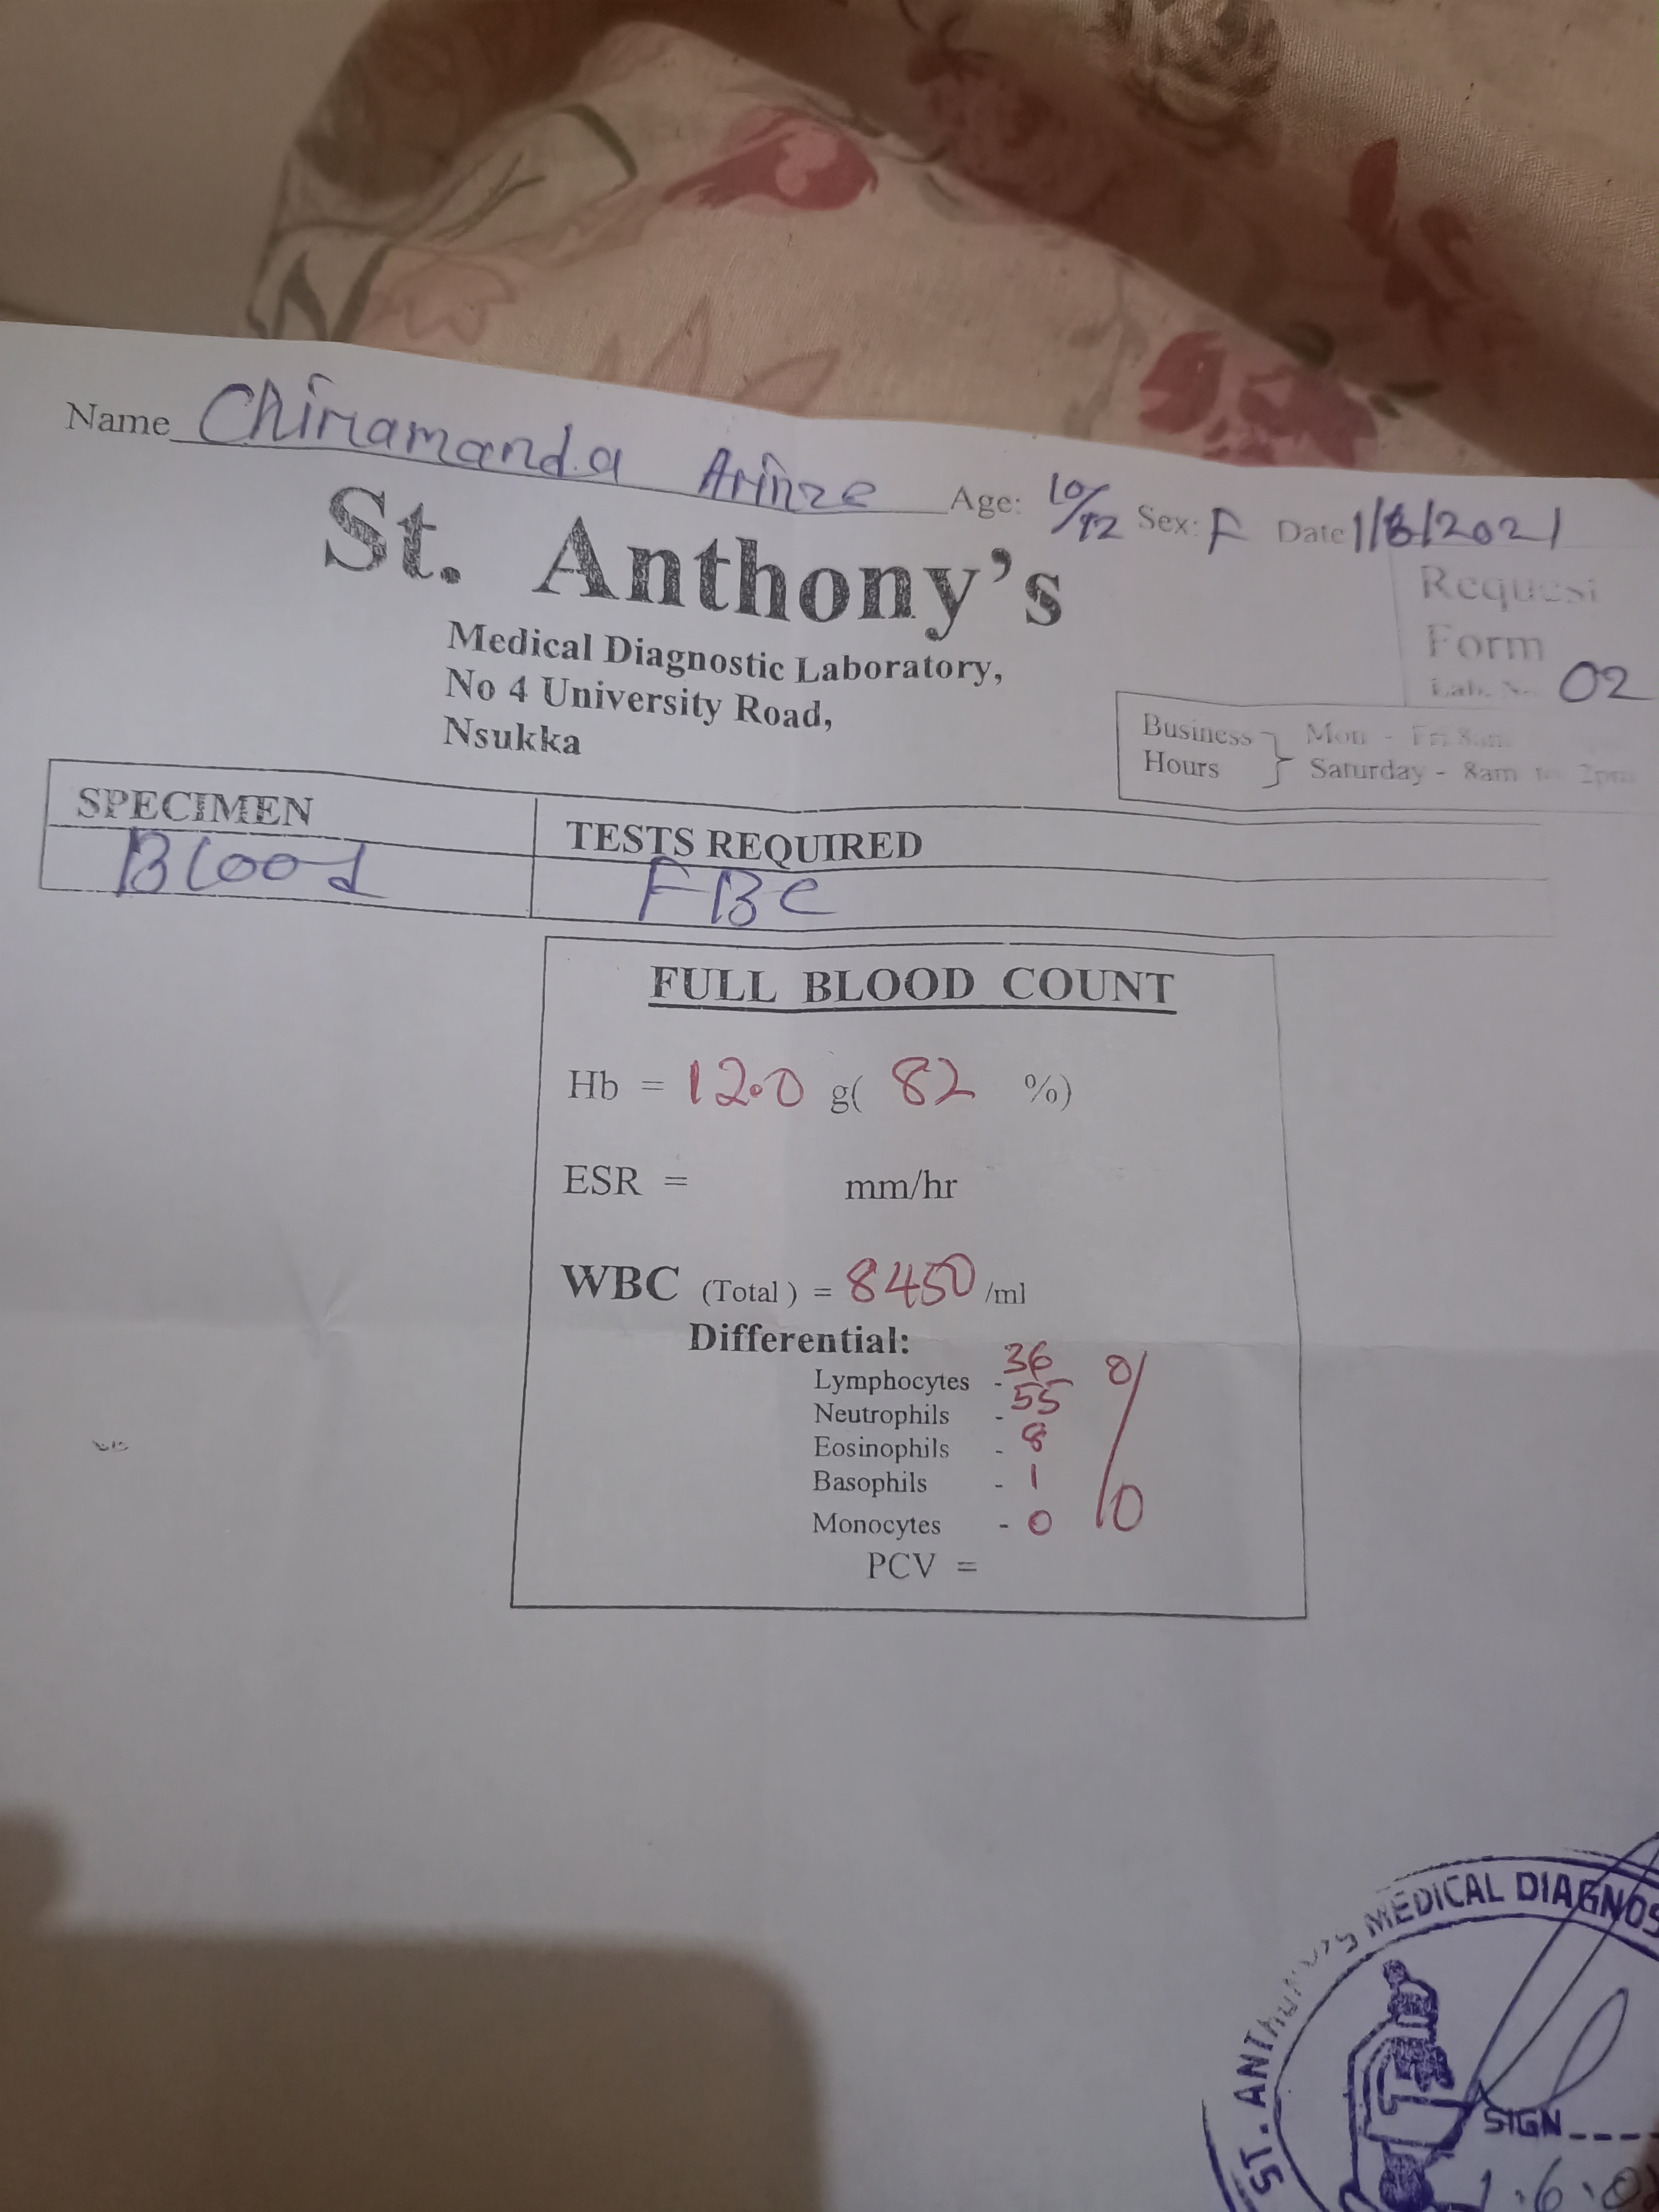 Name Chimamanda Arinze Age: 10/12 Sex: F Date 1/6/2021
St. Anthony's
Medical Diagnostic Laboratory,
No 4 University Road,
Nsukka
Request
Form
Lab. No. 02
Business Hours } Mon - Fri 8am
Saturday - 8am to 2pm
SPECIMEN TESTS REQUIRED
Blood FBC
FULL BLOOD COUNT
Hb = 12.0 g( 82 %)
ESR = mm/hr
WBC (Total ) = 8450 /ml
Differential:
Lymphocytes - 36 %
Neutrophils - 55
Eosinophils - 8
Basophils - 1
Monocytes - 0
PCV =
ST. ANTHONY'S MEDICAL DIAGNOS
SIGN
1.6.